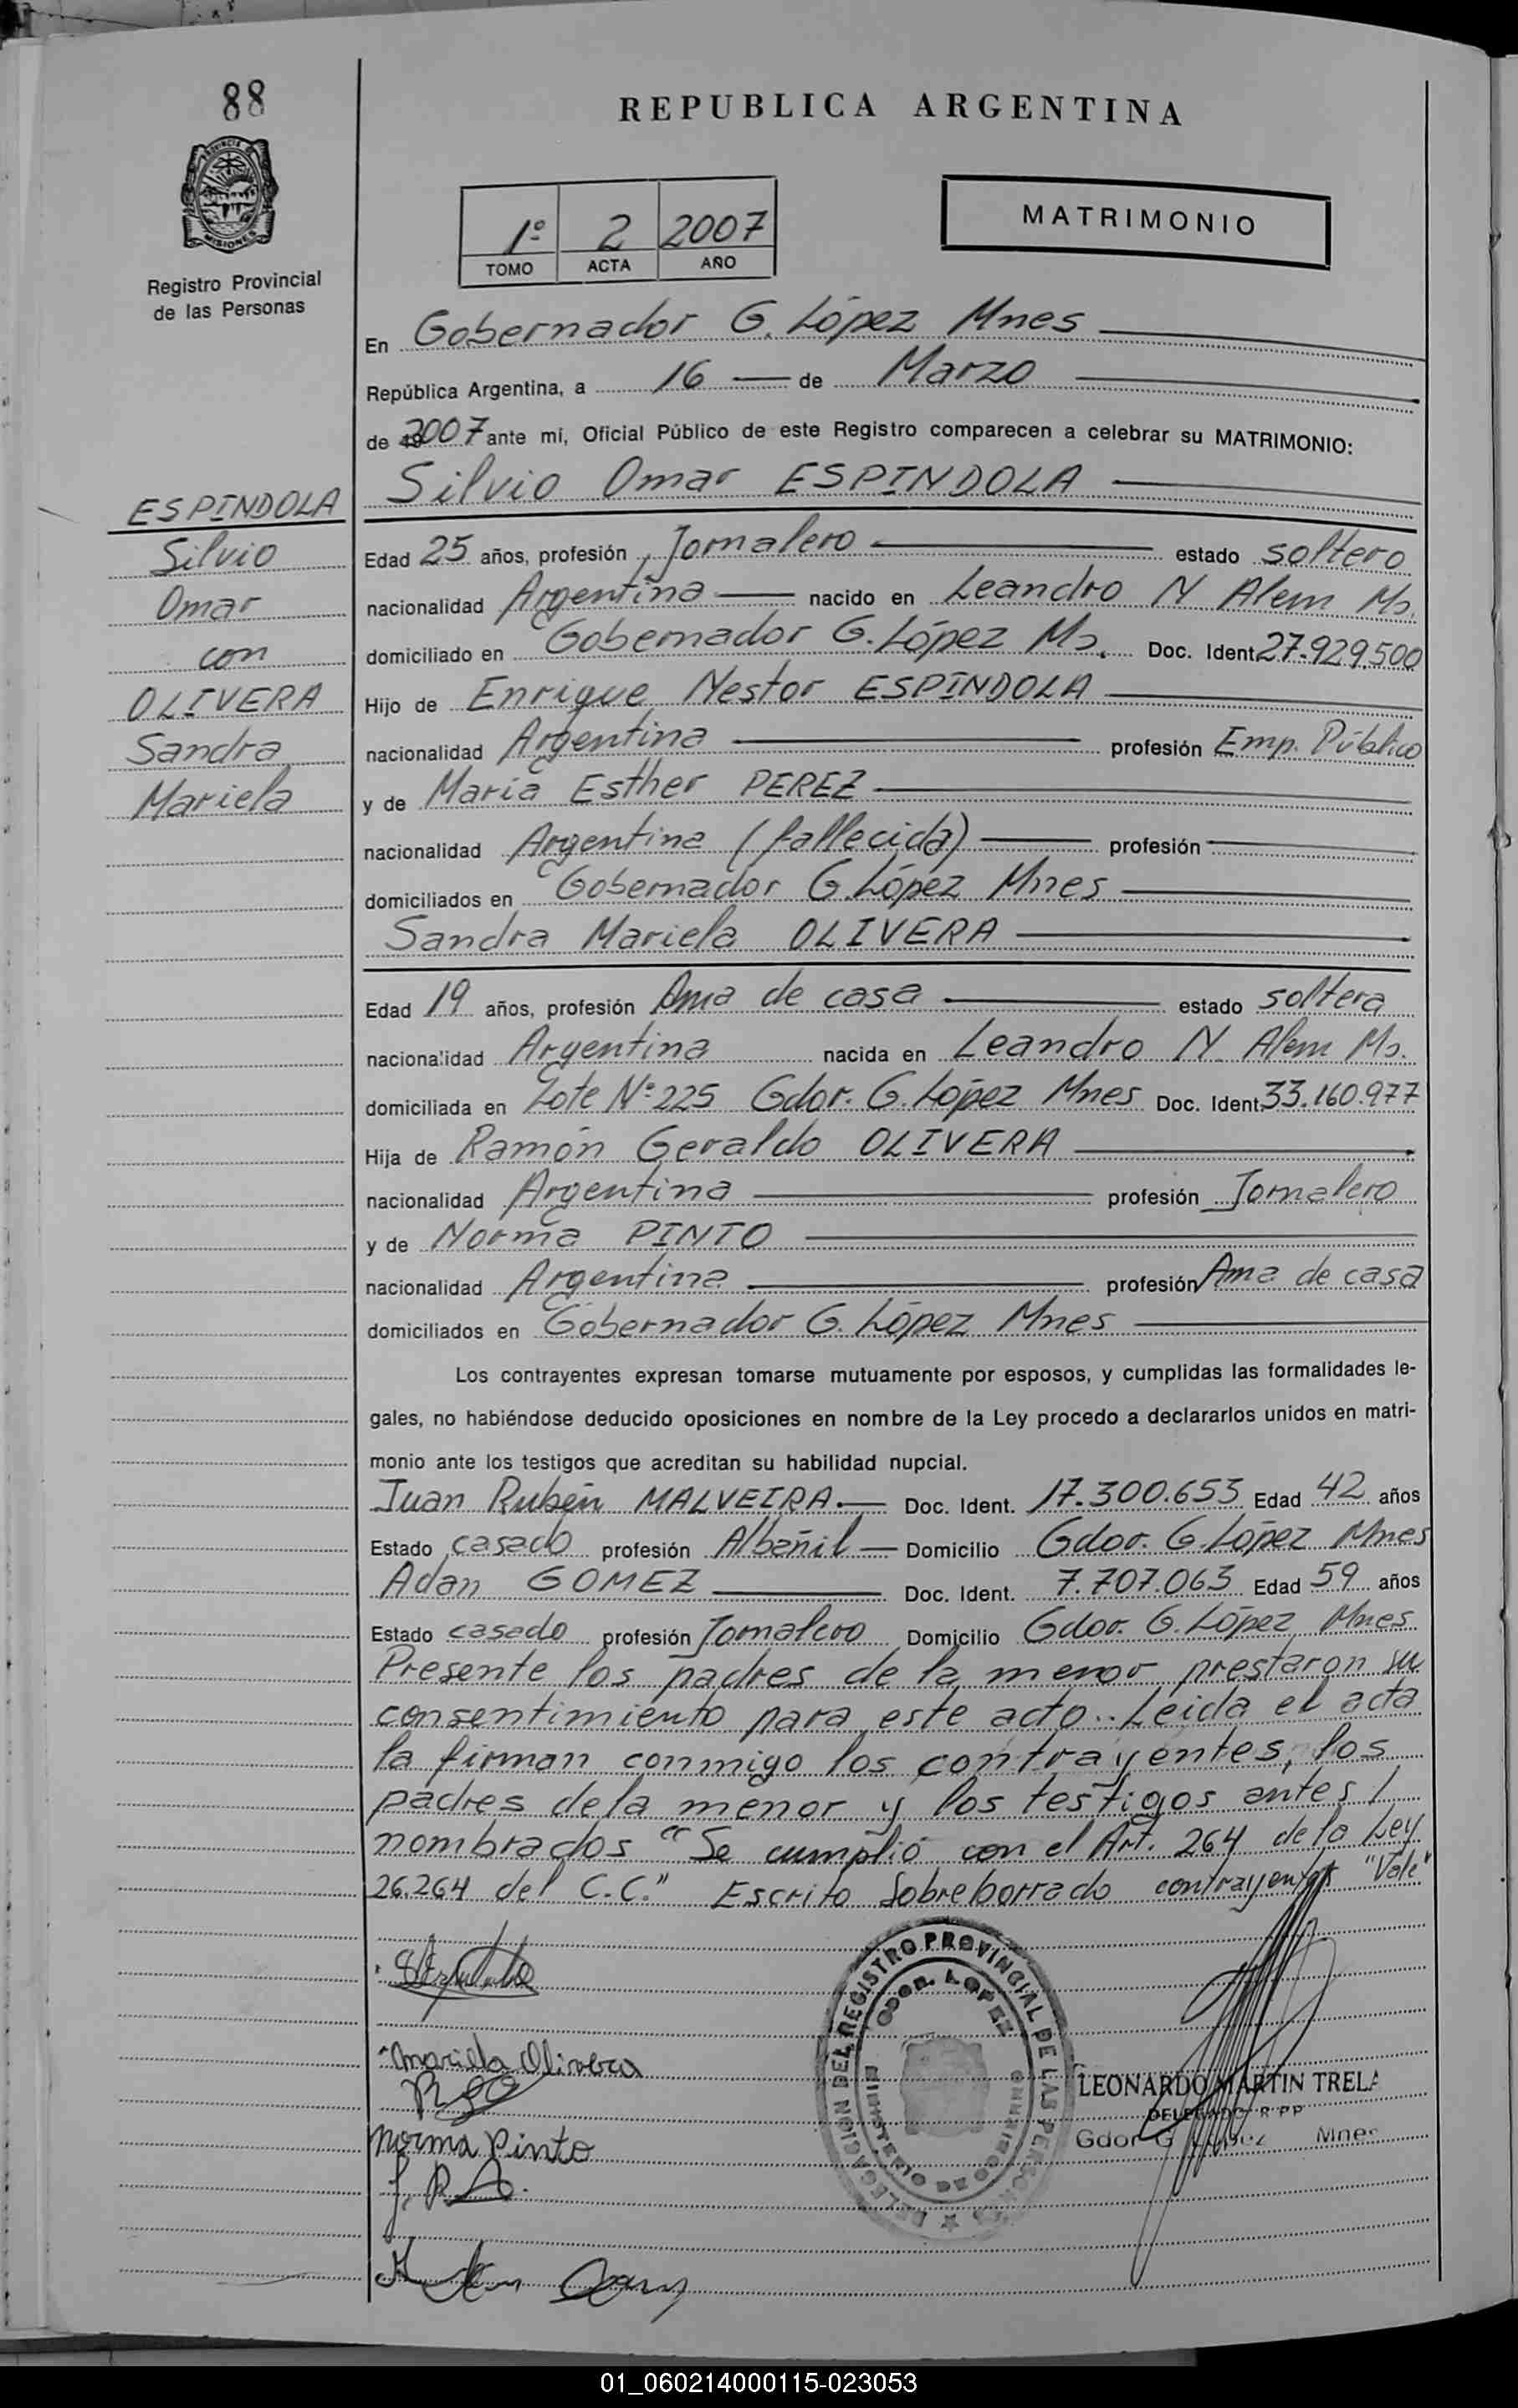 88
REPUBLICA ARGENTINA
MISIONES
Registro Provincial
de las Personas
1º 2 2007
TOMO ACTA AÑO
MATRIMONIO
En Gobernador G. López Mnes
República Argentina, a 16 de Marzo
de 2007 ante mi, Oficial Público de este Registro comparecen a celebrar su MATRIMONIO:
Silvio Omar ESPINDOLA
ESPINDOLA
Silvio
Omar
con
OLIVERA
Sandra
Mariela
Edad 25 años, profesión Jornalero estado soltero
nacionalidad Argentina nacido en Leandro N Alem Ms.
domiciliado en Gobernador G. López Ms. Doc. Ident. 27.929.500
Hijo de Enrique Nestor ESPINDOLA
nacionalidad Argentina profesión Emp. Público
y de María Esther PEREZ
nacionalidad Argentina (fallecida) profesión
domiciliados en Gobernador G. López Mnes
Sandra Mariela OLIVERA
Edad 19 años, profesión Ama de casa estado soltera
nacionalidad Argentina nacida en Leandro N. Alem Ms.
domiciliada en Lote Nº 225 Gdor. G. López Mnes Doc. Ident. 33.160.977
Hija de Ramón Geraldo OLIVERA
nacionalidad Argentina profesión Jornalero
y de Norma PINTO
nacionalidad Argentina profesión Ama de casa
domiciliados en Gobernador G. López Mnes
Los contrayentes expresan tomarse mutuamente por esposos, y cumplidas las formalidades le-
gales, no habiéndose deducido oposiciones en nombre de la Ley procedo a declararlos unidos en matri-
monio ante los testigos que acreditan su habilidad nupcial.
Juan Rubén MALVEIRA. Doc. Ident. 17.300.653 Edad 42 años
Estado casado profesión Albañil Domicilio Gdor. G. López Mnes
Adan GOMEZ Doc. Ident. 7.707.063 Edad 59 años
Estado casado profesión Jornalero Domicilio Gdor. G. López Mnes
Presente los padres de la menor prestaron su
consentimiento para este acto.. Leida el acta
la firman conmigo los contrayentes, los
padres de la menor y los testigos antes /
nombrados "Se cumplió con el Art. 264 de la Ley
26.264 del C.C." Escrito Sobreborrado contrayentes "Vale"
Mariela Olivera
Norma Pinto
DELEGACION DEL REGISTRO PROVINCIAL DE LAS PERSONAS
GDOR. LOPEZ
MINISTERIO DE GOBIERNO
LEONARDO MARTIN TRELA
DELEGADO R.P.P
Gdor G López Mnes
01_060214000115-023053